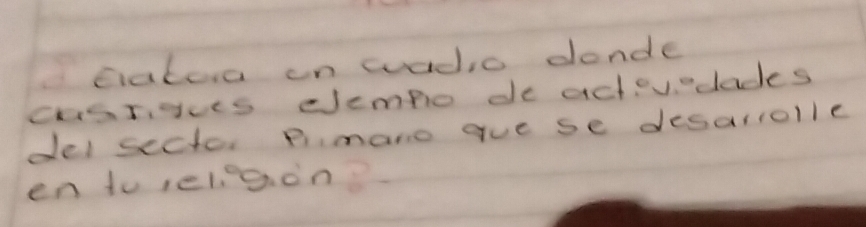 ¿ Elabora un cuadro donde
castigues ejemplo de actividades
del sector Primario que se desarrolle
en tu religión?.